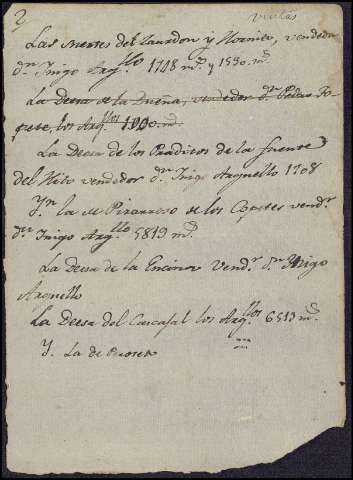 2 ventas
Las suertes del y Hornico, vendedor
dⁿ Iñigo Argˡˡᵒ 1748 mˢ y 1530 mˢ
La Deesa de la Dueña, vendedor dⁿ Pedro
los Argˡˡᵒˢ mˢ
La Deesa de los Praditos de la fuente
del Hito vendedor dⁿ Iñigo Arguello 1708
Yⁿ la de Pizarroso de los Copetes vendʳ
dⁿ Iñigo Argˡˡᵒ 5819 mˢ
La Deesa de la Encina vendʳ dⁿ Iñigo
Arguello
La Deesa del Cascajal los Argˡˡᵒˢ 6513 mˢ
Y. La de